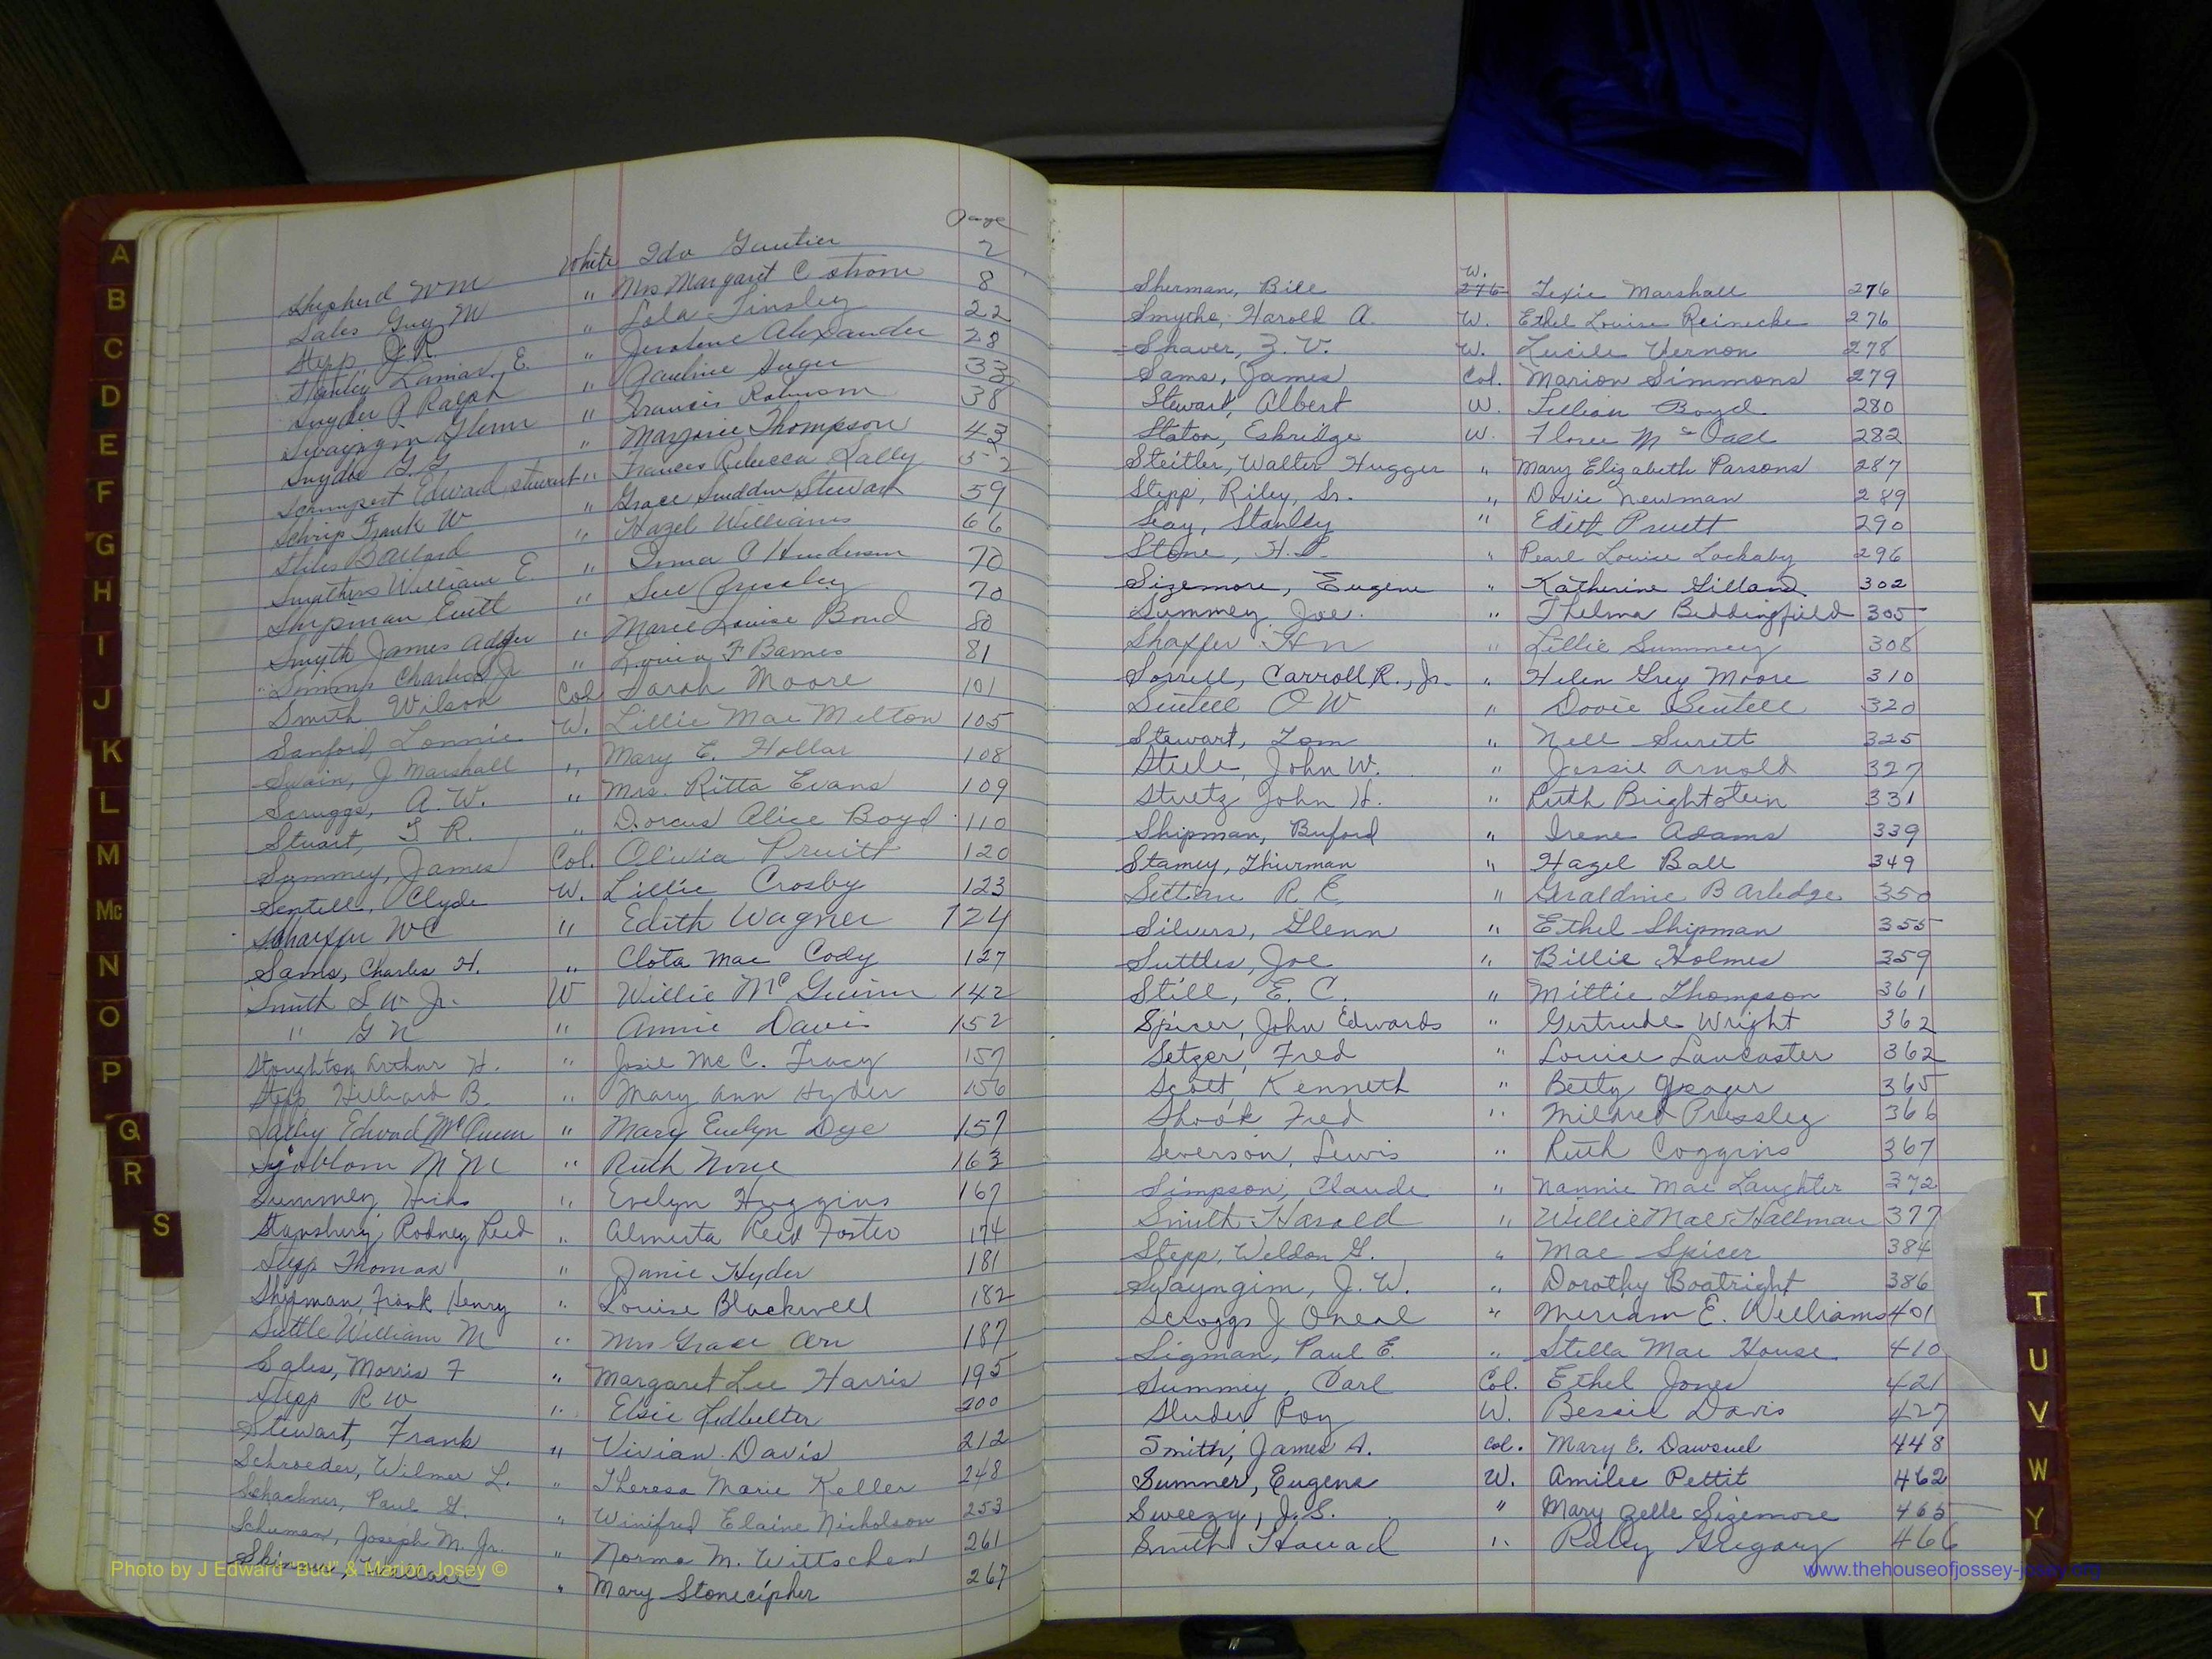 page
Shepherd Wm White Ida Gautier 2
Sales Guy M " Mrs Margaret C Strom 8
Stepp J. R. " Lola Tinsley 22
Stanley Lamar E. " Alexander 28
Snyder J Ralph " Pauline 33
Swayngim Glenn " Francis Robinson 38
Snyder G. G. " Marjorie Thompson 43
Schumpert Edward Stewart " Frances Rebecca Lally 52
Schrip Frank W " Grace Stewart 59
Stiles Ballard " Hazel Williams 66
Smathers William E. " Irma C Henderson 70
Shipman Evitt " Sue Pressley 70
Smyth James Adger " Marie Louise Bond 80
Charles Jr " F Barnes 81
Smith Wilson Col Sarah Moore 101
Sanford, Lonnie W. Lillie Mae Melton 105
Swain, J Marshall " Mary E. Hollar 108
Scruggs, A. W. " Mrs. Ritta Evans 109
Stuart, R. " Dorcus Alice Boyd 110
Summey, James Col. Olivia Pruitt 120
Sentell, Clyde W. Lillie Crosby 123
Schaeffer WC " Edith Wagner 124
Sams, Charles H. " Clota Mae Cody 127
Smith S W Jr. W Willie McGuinn 142
" G N " Annie Davis 152
Stoughton Arthur H. " Josie Mc C. Tracy 157
Stepp Hilliard B. " Mary Ann Hyder 156
Lalby Edward McQueen " Mary Evelyn Dye 157
Sjoblom M M " Ruth 163
Summey, " Evelyn Huggins 167
Stansbery, Rodney Reed " Almerta Reed Foster 174
Stepp Thomas " Janie Hyder 181
Shipman, Frank Henry " Louise Blackwell 182
Suttle William M " Mrs Grace Orr 187
Sales, Morris F " Margaret Lee Harris 195
Stepp R W " Elsie Ledbetter 200
Stewart, Frank " Vivian Davis 212
Schroeder, Wilmer L. " Theresa Marie Keller 248
Schachner, Paul G. " Winifred Elaine Nicholson 253
Schuman, Joseph M. Jr. " Norma M. Wittschen 261
Skinner, Wallace " Mary Stonecipher 267
W.
Sherman, Bill 276 Texie Marshall 276
Smythe, Harold A. W. Ethel Louise Reinecke 276
Shaver, Z. V. W. Lucile Vernon 278
Sams, James Col. Marion Simmons 279
Stewart, Albert W. Lillian Boyd 280
Staton, Eskridge W. Floree McCall 282
Steitler, Walter Hugger " Mary Elizabeth Parsons 287
Stepp, Riley, Sr. " Dovie Newman 289
Seay, Stanley " Edith Pruett 290
Stone, H. P. " Pearl Louise Lockaby 296
Sizemore, Eugene " Katherine Gilland 302
Summey, Joe. " Thelma Beddingfield 305
Shaffer H n " Lillie Summey 308
Sorrell, Carroll R., Jr. " Helen Grey Moore 310
Sentell O W " Dovie Sentell 320
Stewart, Tom " Nell Surett 325
Steele, John W. " Jessie Arnold 327
Stuetz John H. " Ruth Brightstein 331
Shipman, Buford " Irene Adams 339
Stamey, Thurman " Hazel Ball 349
R E " Geraldine B Arledge 350
Silvers, Glenn " Ethel Shipman 355
Suttles, Joe " Billie Holmes 359
Still, E. C. " Mittie Thompson 361
Spicer, John Edwards " Gertrude Wright 362
Setzer, Fred " Louise Lancaster 362
Scott, Kenneth " Betty Yeager 365
Shook Fred " Mildred Pressley 366
Severson, Lewis " Ruth Coggins 367
Simpson, Claude " Nannie Mae Laughter 372
Smith Harold " Willie Mae Hallman 377
Stepp, Weldon G. " Mae Spicer 384
Swayngim, J. W. " Dorothy Boatright 386
Scroggs J Oneal " Meriam E. Williams 401
Sigman, Paul E. " Stella Mae House 410
Summey, Carl Col. Ethel Jones 421
Sluder Roy W. Bessie Davis 427
Smith, James A. Col. Mary E. Dawsuel 448
Sumner, Eugene W. Amilee Pettit 462
Sweezy, J. S. " Mary Zelle Sizemore 465
Smith Howard " Ruby Gregory 466
A
B
C
D
E
F
G
H
I
J
K
L
M
Mc
N
O
P
Q
R
S
T
U
V
W
Y
Photo by J Edward "Bud" & Marion Josey ©
www.thehouseofjossey-josey.org